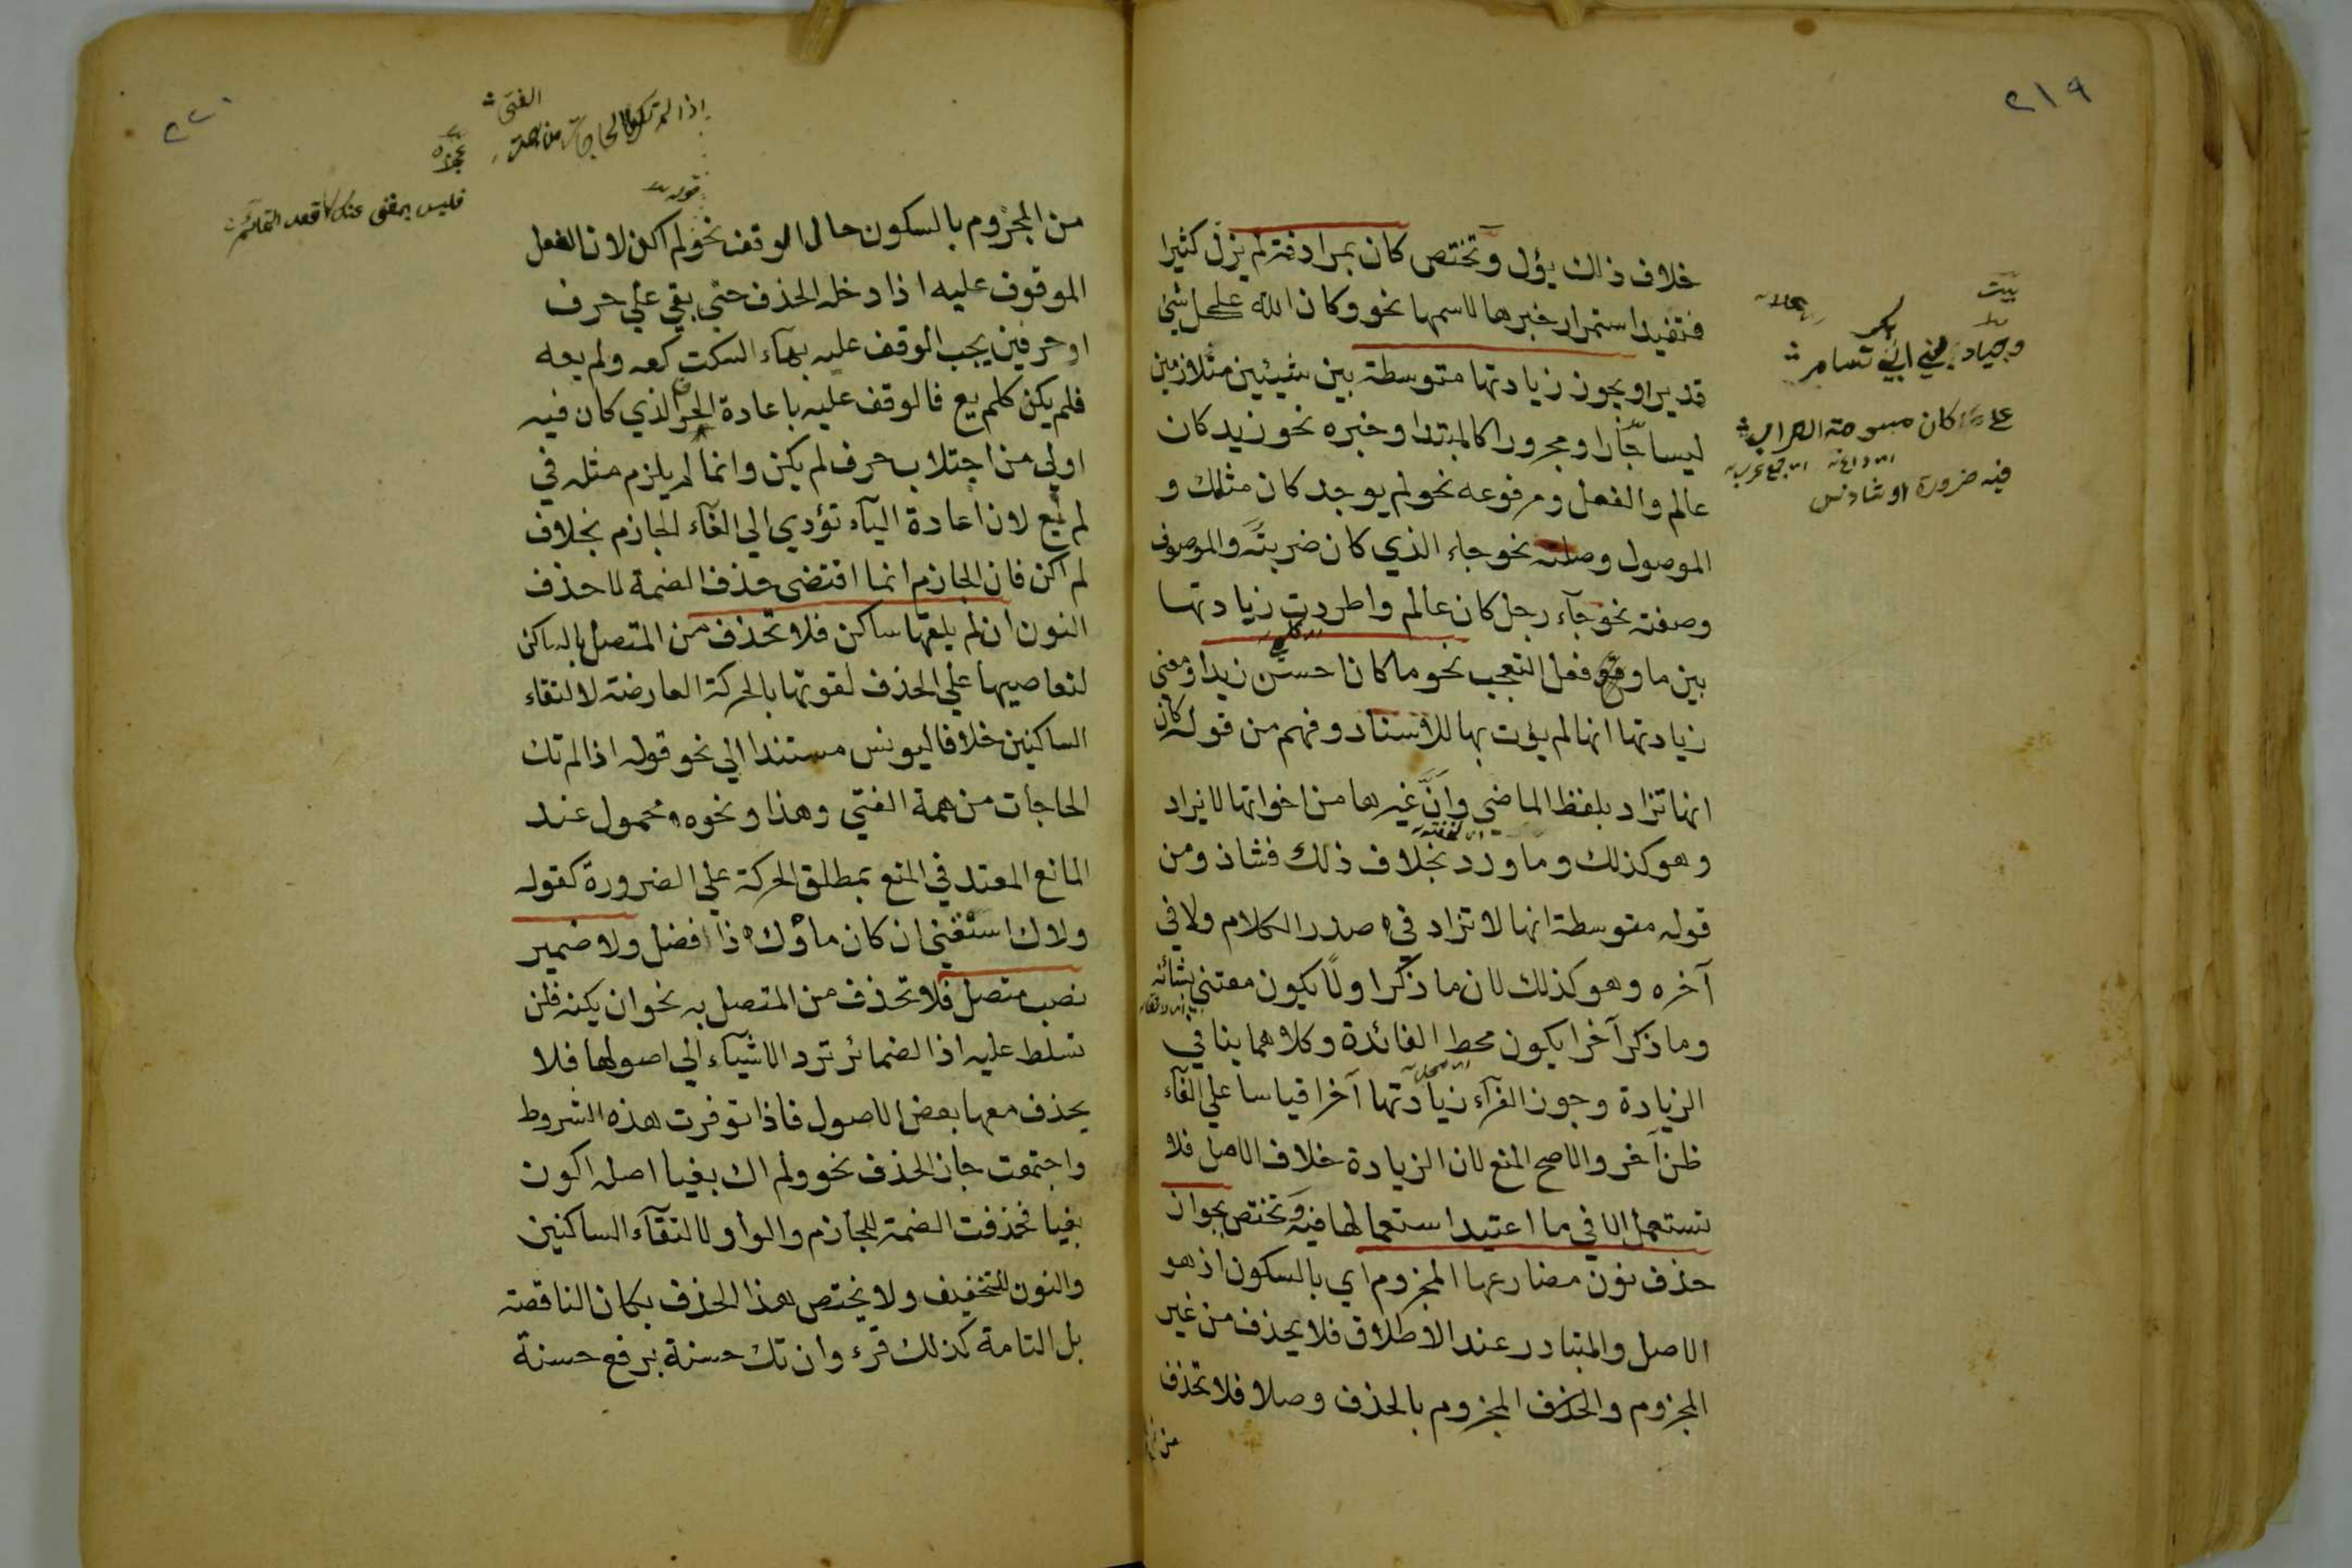 ٢١٩
خلاف ذلك يؤل وتختص كان بمرادفة لم يزل كثيرا
فتفيد استمرار خبرها لاسمها نحو وكان الله على كل شئ
قديرا ويجوز زيادتها متوسطة بين شيئين متلازمين
ليسا جارا ومجرورا كالمبتدا وخبره نحو زيد كان
عالم والفعل ومرفوعه نحو لم يوجد كان مثلك و
الموصول وصلته نحو جاء الذي كان ضربته والموصوف
وصفته نحو جآء رجل كان عالم واطردت زيادتها
بين ما وفعل التعجب نحو ما كان احسن زيدا ومعنى
زيادتها انها لم يؤت بها للاسناد وفهم من قوله كان
انها تزاد بلفظ الماضي وان غيرها من اخواتها لا يزاد
وهو كذلك وما ورد بخلاف ذلك فشاذ ومن
قوله متوسطة انها لا تزاد في صدر الكلام ولا في
آخره وهو كذلك لان ما ذكر اولا يكون معتني بشانه
وما ذكر آخرا يكون محط الفائدة وكلاهما ينافي
الزيادة وجوز الفرآء زيادتها آخرا قياسا على الغآء
ظن آخر والاصح المنع لان الزيادة خلاف الاصل فلا
تستعمل الا في ما اعتيد استعمالها فيه وتختص بجواز
حذف نون مضارعها المجزوم اي بالسكون اذ هو
الاصل والمتبادر عند الاطلاق فلا يحذف من غير
المجزوم والحذف المجزوم بالحذف وصلا فلا تحذف
من
بيت
وجياد بني ابي بكر تسامر
على كان مسومة العراب
فيه ضرورة او شاذ
٢٢٠
اذا لم تك الحاجات من همة الفتى
عجزه
فليس بمغن عنك عقد التمائم
قوله
من المجزوم بالسكون حال الوقف نحو لم اكن لان الفعل
الموقوف عليه اذا دخله الحذف حتي بقي علي حرف
او حرفين يجب الوقف عليه بهاء السكت كعه ولم يعه
فلم يكن كلم يع فالوقف عليه باعادة الحرف الذي كان فيه
اولي من اجتلاب حرف لم يكن وانما لم يلزم مثله في
لم يع لان اعادة اليآء تؤدي الي الغآء الجازم بخلاف
لم اكن فان الجازم انما اقتضى حذف الضمة لا حذف
النون ان لم يلقها ساكن فلا تحذف من المتصل بالساكن
لتعاصيها علي الحذف لقوتها بالحركة العارضة لالتقاء
الساكنين خلافا ليونس مستندا الي نحو قوله اذا لم تك
الحاجات من همة الفتي وهذا ونحوه محمول عند
المانع المعتد في المنع بمطلق الحركة علي الضرورة كقوله
ولاك اسقني ان كان ماؤك ذا فضل ولا ضمير
نصب متصل فلا تحذف من المتصل به نحو ان يكنه فلن
تسلط عليه اذ الضمائر ترد الاشيآء الي اصولها فلا
يحذف معها بعض الاصول فاذا توفرت هذه الشروط
واجتمعت جاز الحذف نحو ولم اك بغيا اصله اكون
بغيا فحذفت الضمة للجازم والواو لالتقآء الساكنين
والنون للتخفيف ولا يختص هذا الحذف بكان الناقصة
بل التامة كذلك قرء وان تك حسنة برفع حسنة